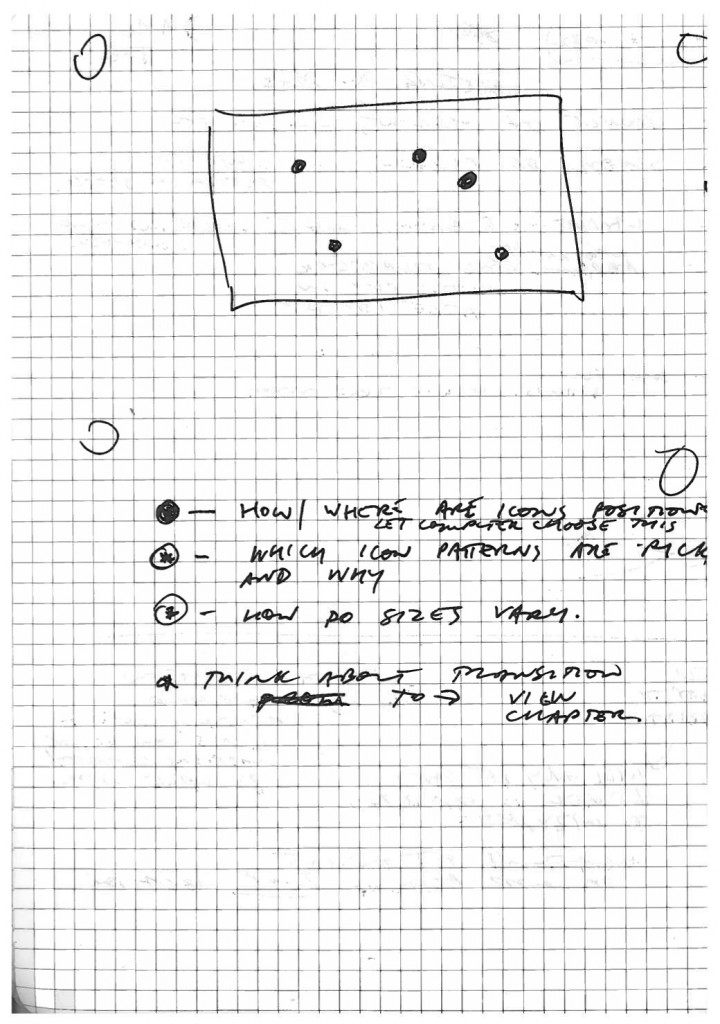 — HOW / WHERE ARE ICONS POSITION
LET COMPUTER CHOOSE THIS
— WHICH ICON PATTERNS ARE PICK
AND WHY
— HOW DO SIZES VARY.
* THINK ABOUT TRANSITION
TO → VIEW
CHAPTER.